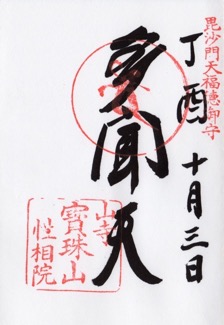 毘沙門天福徳御守
丁酉 十月三日
多聞天
山寺
寶珠山
性相院